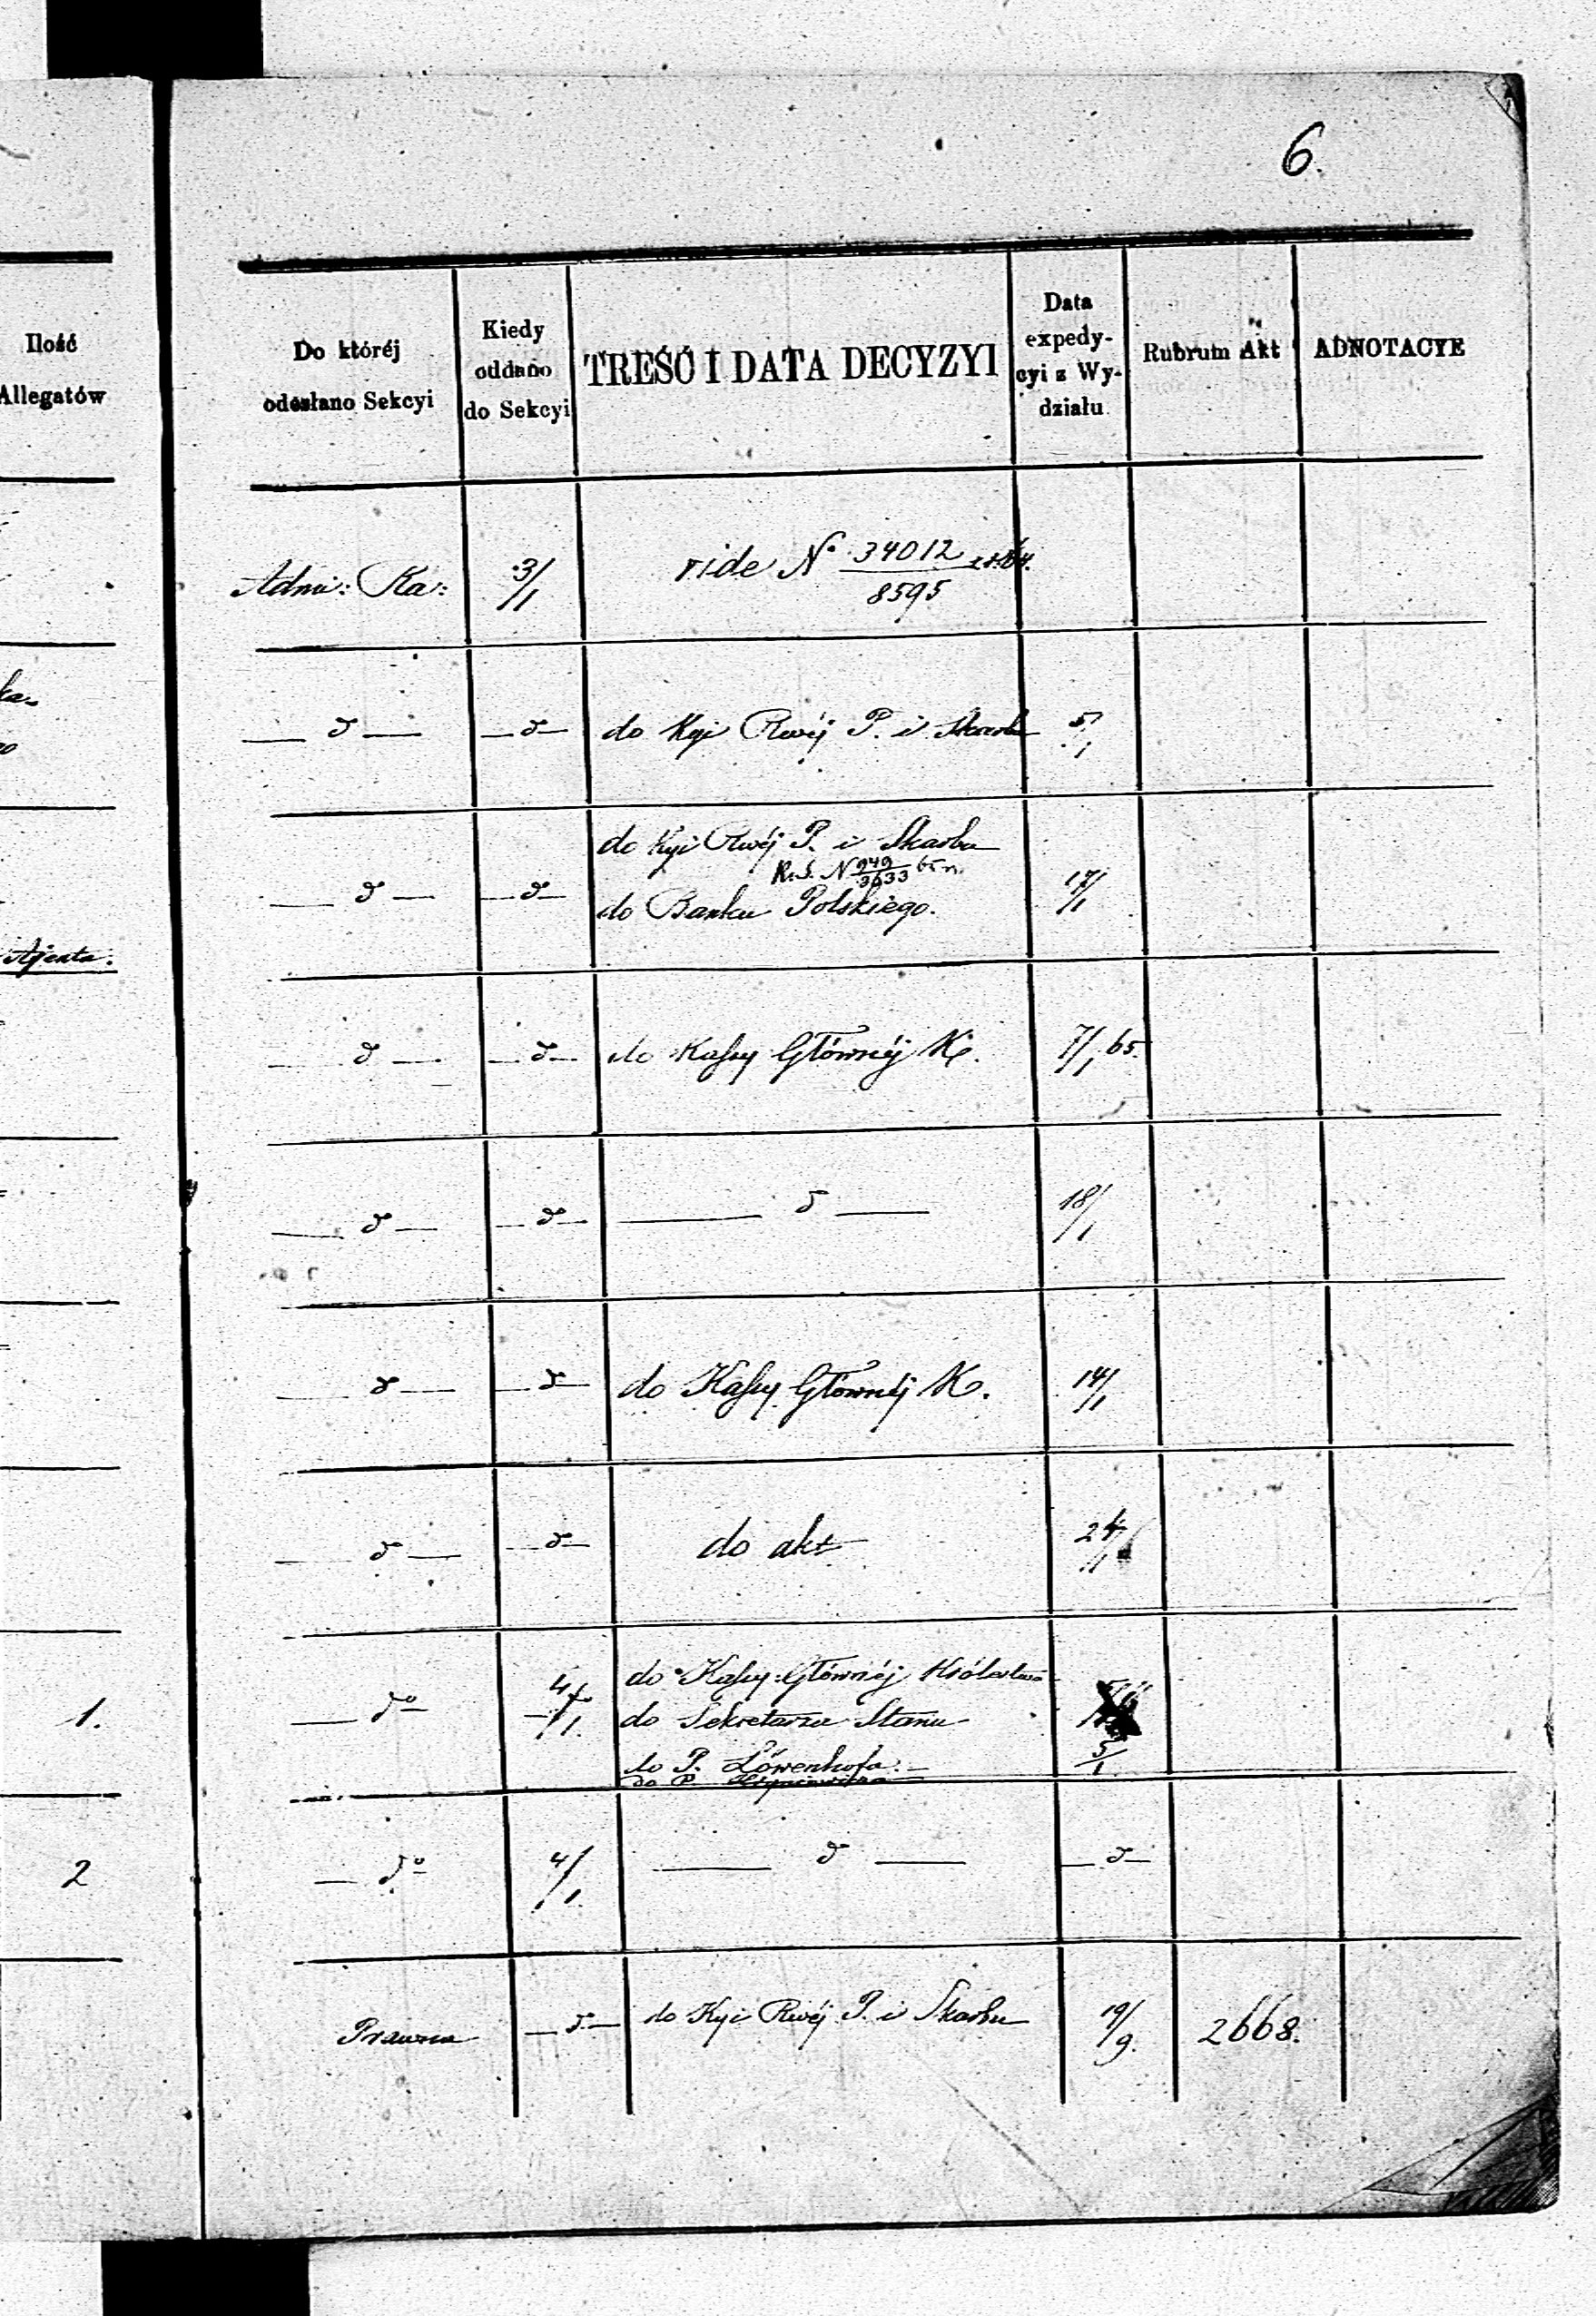 6.
Ilość
Allegatów
Do któréj
odesłano Sekcyi
Kiedy
oddano
do Sekcyi
TREŚĆ I DATA DECYZYI
Data
expedy-
cyi z Wy-
działu
Rubrum Akt
ADNOTACYE
Admi: Ka: 3/1 vide N° 34012/8595 z r. 64.
ka-
— d — — d — do Kyi Rwéj P. i Skarbu 5/1
do Kyi Rwéj P. i Skarbu
R. S. N 949/3633 65 r.
— d — — d — do Banku Polskiego. 17/1
Ajenta.
— d — — d — do Kassy Głównéj K. 7/1 65.
— d — — d — — d — 18/1
— d — — d — do Kassy Głównéj K. 14/1
— d — — d — do akt 24/1
do Kassy Głównéj Królestwa
1. — do — 4/1 do Sekretarza Stanu
do P. Löwenhofa. 5/1
do P.
2 — do — 4/1 — d — — d —
Prawna — d — do Kyi Rwéj P. i Skarbu 19/9. 2668.